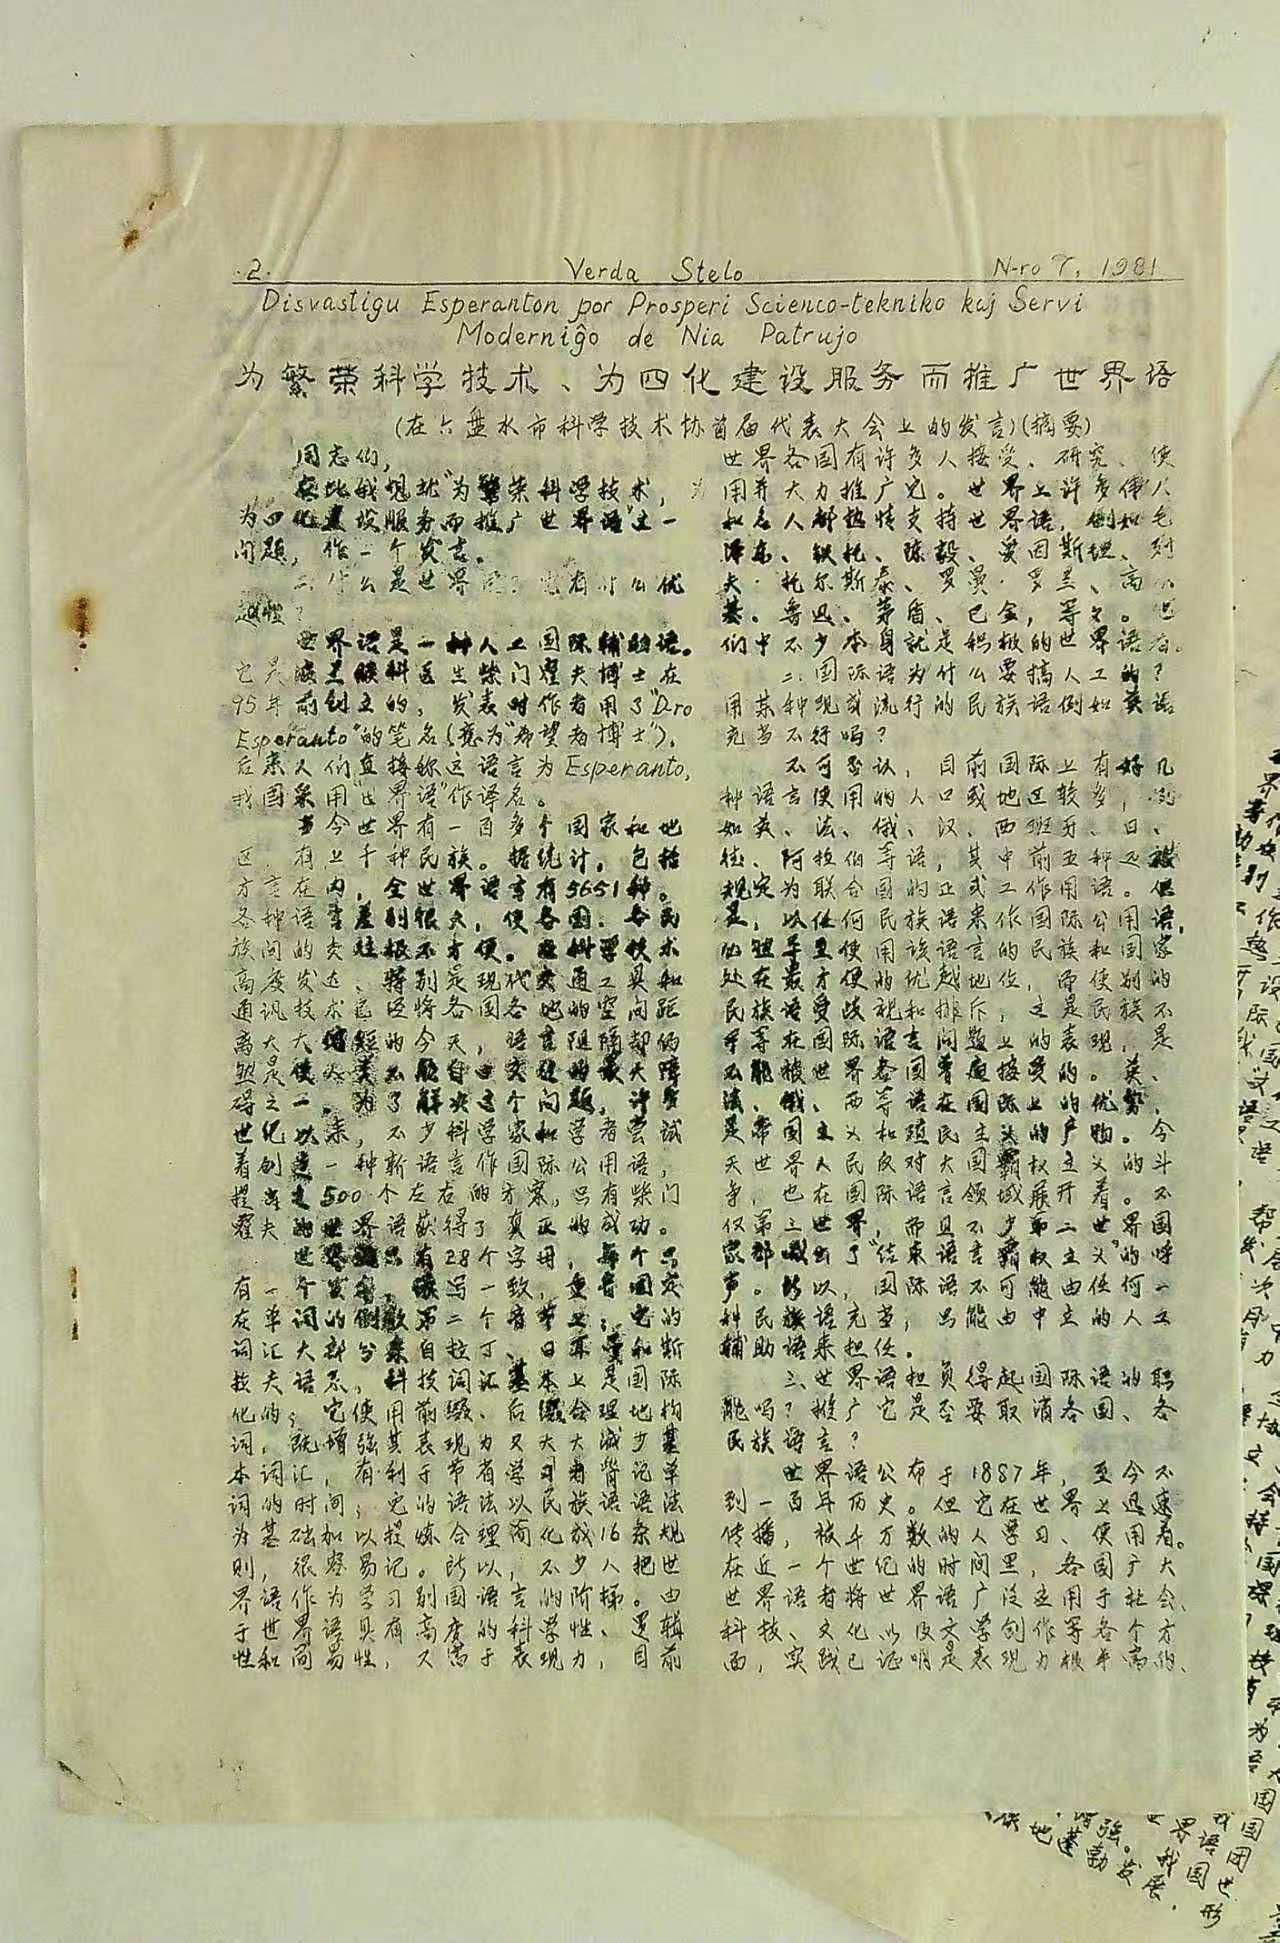 ·2·
Verda Stelo
N-ro 7, 1981
Disvastigu Esperanton por Prosperi Scienco-tekniko kaj Servi
Moderniĝo de Nia Patrujo
为繁荣科学技术、为四化建设服务而推广世界语
(在六盘水市科学技术协首届代表大会上的发言)(摘要)
同志们,
在此我想就"为繁荣科学技术,
为四化建设服务而推广世界语"这一
问题,作一个发言。
一、什么是世界语?它有什么优
越性?
世界语是一种人工国际辅助语。
它是波兰眼科医生柴门霍夫博士在
95年前创立的,发表时作者用了"D-ro
Esperanto"的笔名(意为"希望者博士")。
后来人们直接称这语言为Esperanto,
我国采用"世界语"作译名。
当今世界有一百多个国家和地
区,有上千种民族。据统计,包括
方言在内,全世界语言有5651种。
各种语言差别很大,使各国、各民
族间的交往极不方便。在科学技术
高度发达、特别是现代交通工具和
通讯技术已经将各国各地的空间距
离大大缩短的今天,语言阻隔却仍
然是使人类不能自由交往的最大障
碍之一。为了解决这个问题,许多
世纪以来,不少科学家和学者尝试
着创造一种新语言作国际公用语,
提出之500个左右的方案,只有柴门
霍夫的世界语获得了真正的成功。
世界语只有28个字母,每个只
有一个发音,读写一致,重音固定
在单词的倒数第二个音节上;它的
词汇大部分来自拉丁、日耳曼和斯
拉夫语系,科技词汇基本上是国际
化的;它使用前缀、后缀合理地构
词,既增强其表现力又大大减少基
本词汇,有利于节省学习者背记单
词的时间;它的语法以民族语语法
为基础加以提炼合理简化成16条规
则,很容易记。所以,不少人把世
界语作为学习别国语言的阶梯。由
于世界语具有高度的科学性、逻辑
性和简易性,又富于表现力,目前
世界各国有许多人接受、研究、使
用并大力推广它。世界上许多伟人
和名人都热情支持世界语,例如毛
泽东、铁托、陈毅、爱因斯坦、列
夫·托尔斯泰、罗曼·罗兰、高尔
基、鲁迅、茅盾、巴金,等等。他
们中不少本身就是积极的世界语者。
二、国际语为什么要搞人工的?
用某种现成流行的民族语例如英语
充当不行吗?
不可否认,目前国际上有好几
种语言使用的人口或地区较多,例
如英、法、俄、汉、西班牙、日、
德、阿拉伯等语,其中前五种还被
规定为联合国的正式工作用语。但
是,以任何民族语来作国际公用语,
必然导至使用该语言的民族和国家
处在最方便的优越地位,而使别的
民族语受歧视和排斥,这是民族不
平等在国际语言问题上的表现,是
不能被世界各国普遍接受的。英、
法、俄、西等语在国际上的优势,
是帝国主义和殖民主义的产物。今
天世界人民反对大国霸权主义的斗
争,也在国际语言领域展开着。不
仅第三世界,而且不少第二世界国
家都喊出了"结束语言霸权主义"的呼
声。所以,国际语不可能由任何一
种民族语充当,只能由中立的人工
辅助语来担任。
三、世界语担负得起国际语的职
能吗?推广它是否要取消各国、各
民族语言?
世界语公布于1887年,至今不
到一百年历史。但它在世界上迅速
传播,被千万数的人学习、使用着。
在近一个世纪的时间里,各国广大
世界语者将世界语广泛应用于社会、
科技、文化以及文学创作等各个方
面,实践已证明是表现力极丰富的、